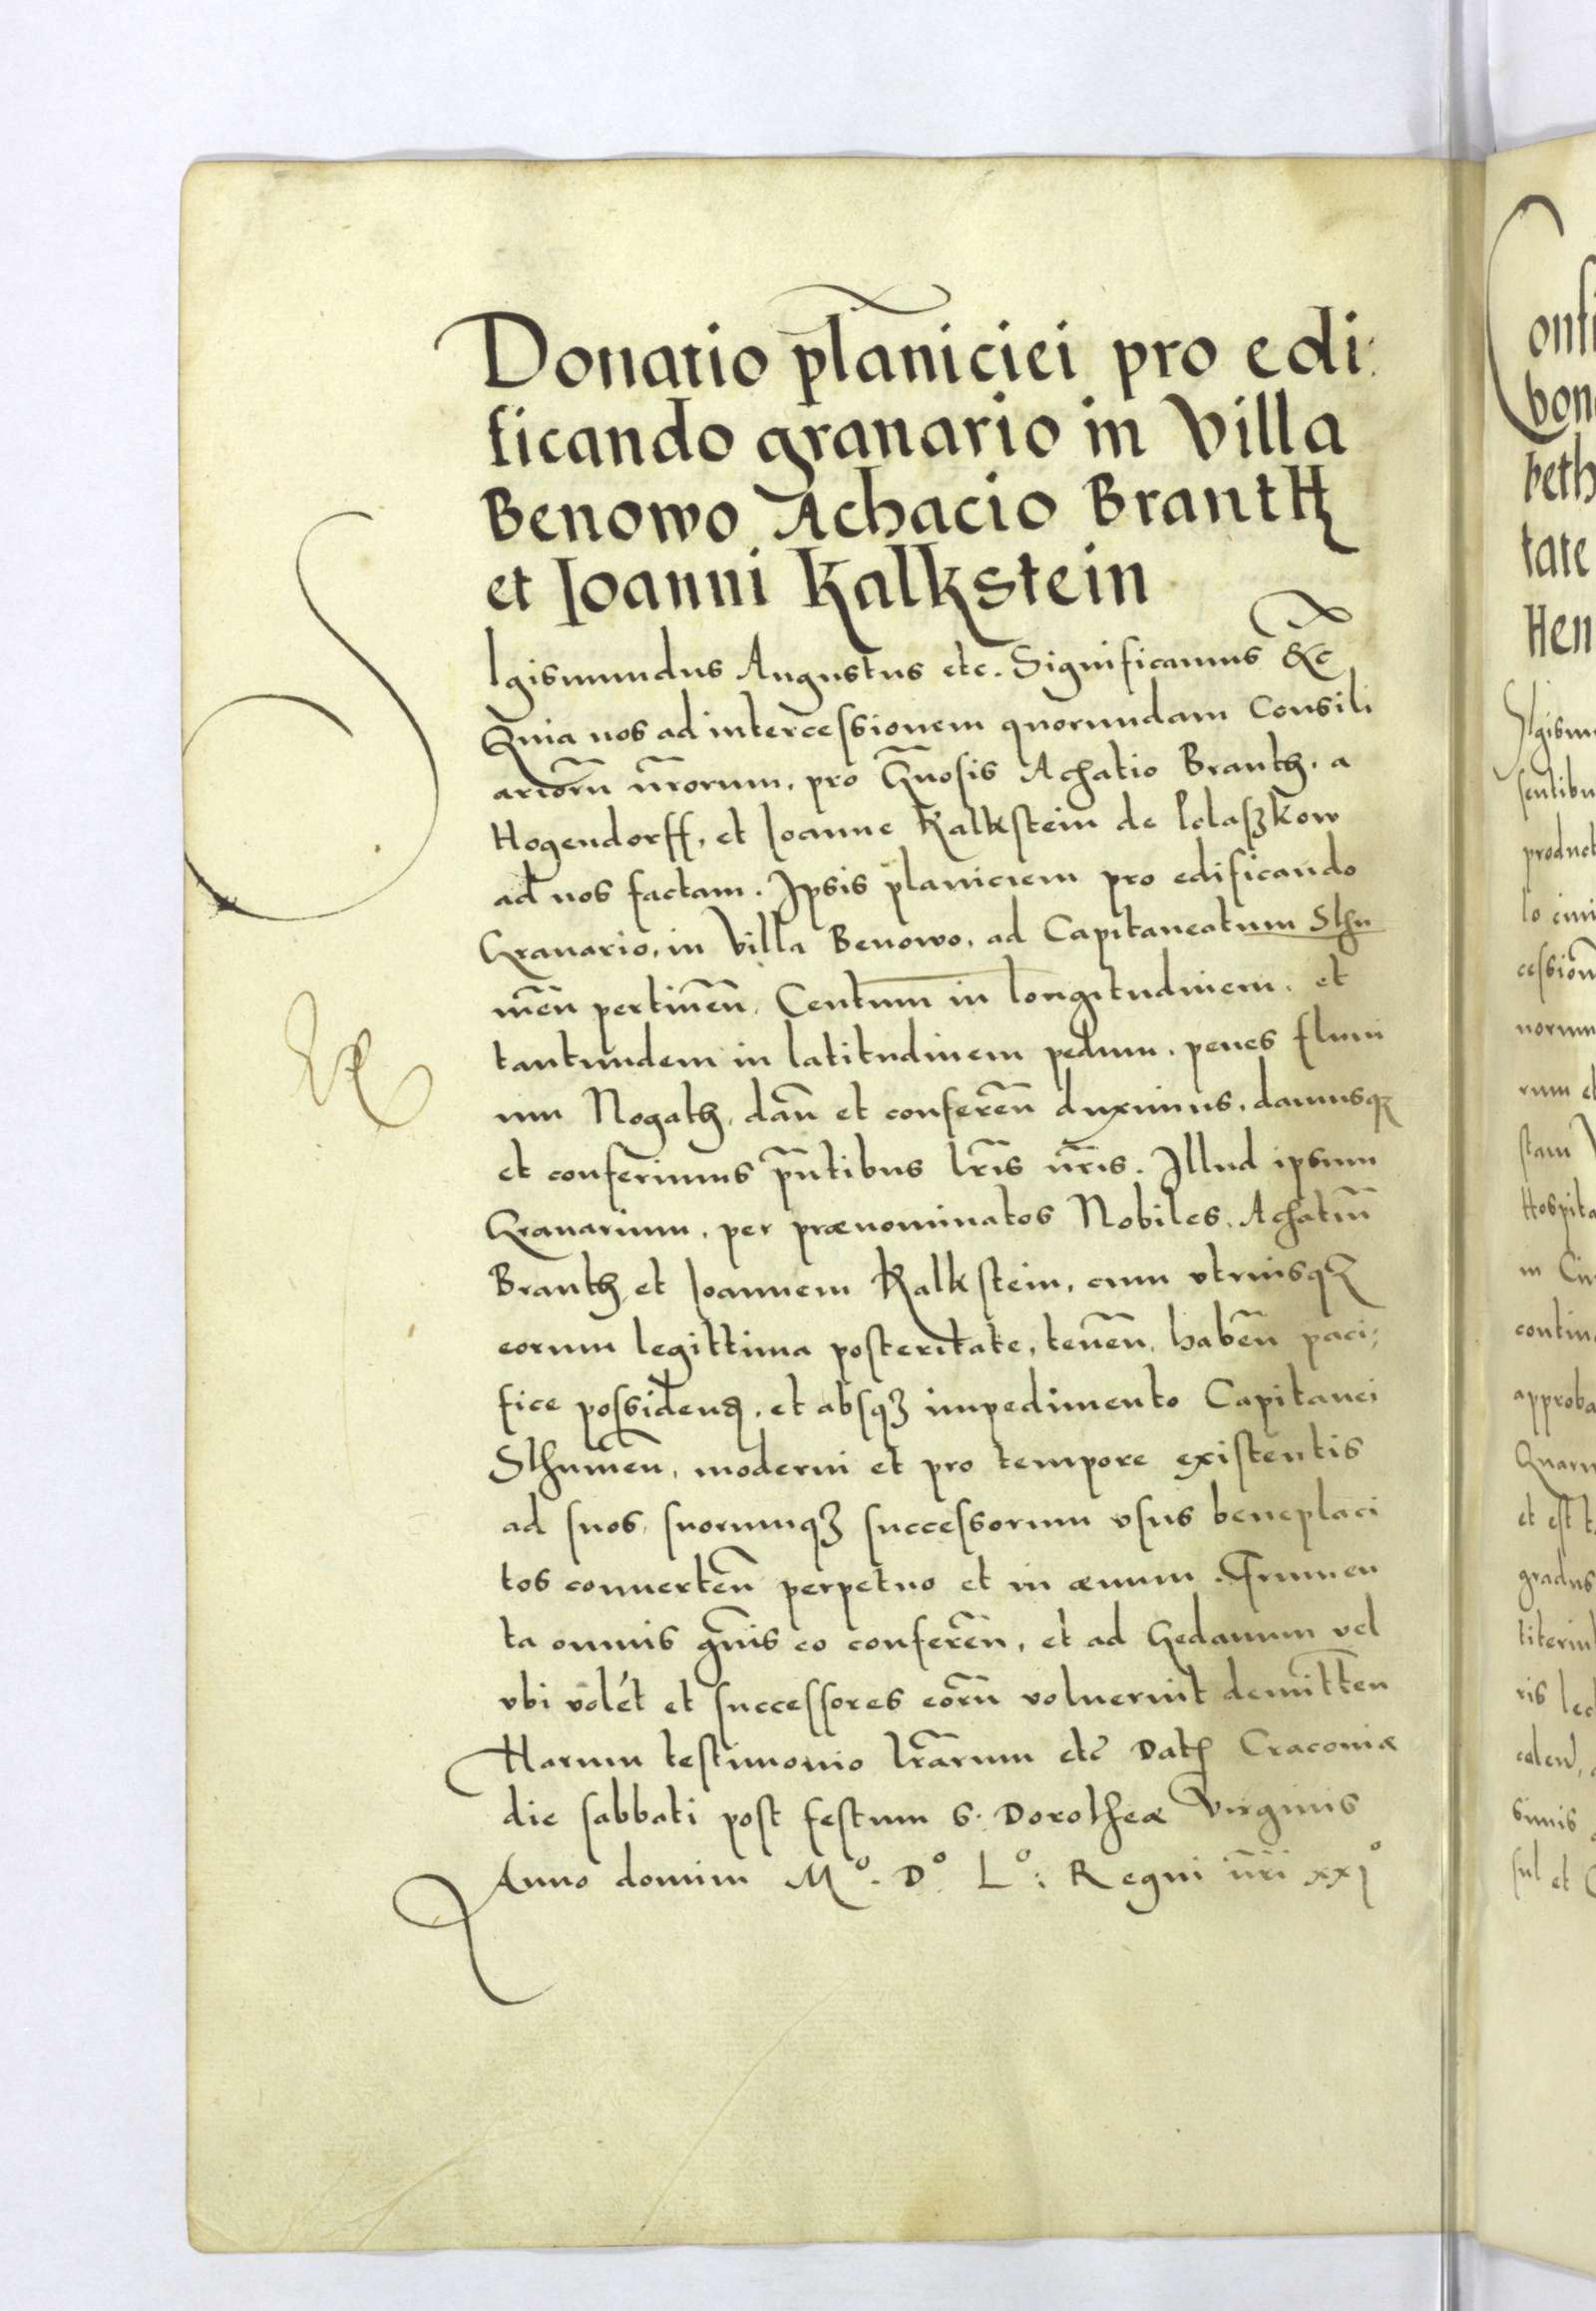 Donatio planiciei pro edi:
ficando granario in Villa
Benowo Achacio Branth
et Joanni Kalkstein
SIgismundus Augustus etc. Significamus &c̃
Quia nos ad intercessionem quorundam Consili
ariorũ nr̃orum, pro Gñosis Achatio Branth, a
Hogendorff, et Joanne Kalkstein de Polaszkow
ad nos factam. Ipsis planiciem pro edificando
Granario, in Villa Benowo, ad Capitaneatum Sthu
meñ pertineñ, Centum in longitudinem, et
tantundem in latitudinem pedum, penes fluui
um Nogath, dañ et confereñ duximus, damusqꝫ
et conferimus pñtibus lr̃is nr̃is. Illud ipsum
Granarium, per prænominatos Nobiles, Achatiũ
Branth et Joannem Kalkstein, cum vtriusqꝫ
eorum legittima posteritate, teneñ, habeñ paci:
fice possidend, et absqꝫ impedimento Capitanei
Sthumeñ, moderni et pro tempore existentis
ad suos, suorumqꝫ successorum vsus beneplaci
tos conuerteñ perpetuo et in æuum. Frumen
ta omnis gñis eo confereñ, et ad Gedanum vel
vbi volét et successores eorũ voluerint demitteñ
Harum testimonio lr̃arum etc̃ Dat Cracouiæ
die sabbati post festum S. Dorotheæ Virginis
Anno domini Mº. Dº. Lº: Regni nr̃i xxjº
onfi
bon
beth
tate
Hen
SIgism
sentibu
product
cessionẽ
norum
rum et
stam
Hospita
in Ciu
contin
approba
Quaru
et est t
gradus
titerint
ris
simis
sul et